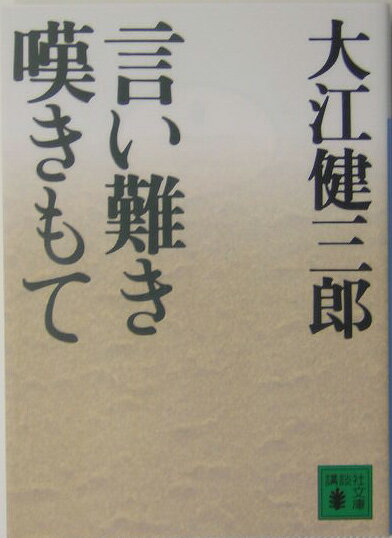 大江健三郎
言い難き
嘆きもて
講談社文庫